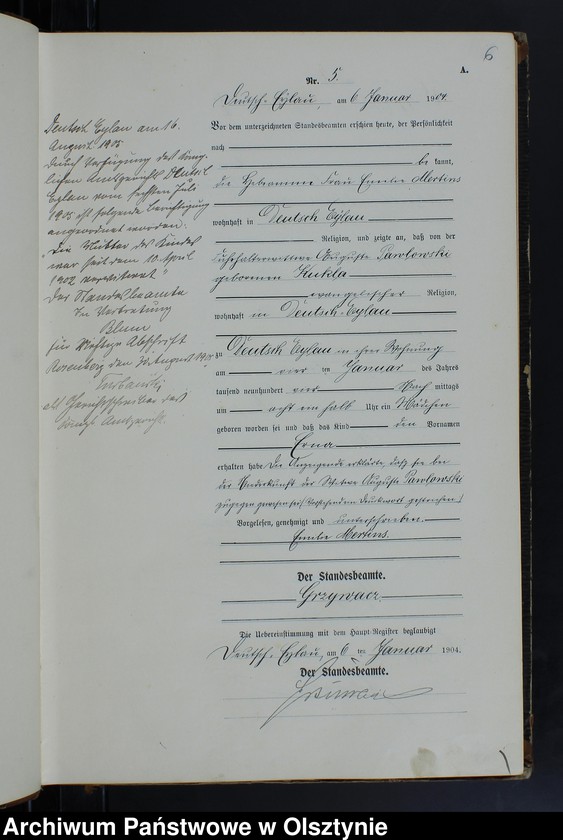 6
A.
Nr. 5.
Deutsch-Eylau, am 6 Januar 1904.
Vor dem unterzeichneten Standesbeamten erschien heute, der Persönlichkeit
nach
be kannt,
die Hebamme Frau Emilie Mertins
wohnhaft in Deutsch Eylau
Religion, und zeigte an, daß von der
Auguste Pawlowski
geborenen Kukla
evangelischer Religion,
wohnhaft in Deutsch-Eylau
zu Deutsch Eylau in ihrer Wohnung
am vier ten Januar des Jahres
tausend neunhundert vier Nach mittags
um acht ein halb Uhr ein Mädchen
geboren worden sei und daß das Kind den Vornamen
Erna
erhalten habe. Die Anzeigende erklärte, daß sie bei
der Niederkunft der Witwe Auguste Pawlowski
zugegen gewesen sei. Vorstehend ein Druckwort gestrichen.
Vorgelesen, genehmigt und unterschrieben.
Emilie Mertins.
Der Standesbeamte.
Grzywacz.
Die Uebereinstimmung mit dem Haupt-Register beglaubigt
Deutsch-Eylau, am 6 ten Januar 1904.
Der Standesbeamte.
Deutsch Eylau am 16.
August 1905
Durch Verfügung des König-
lichen Amtsgerichts Deutsch
Eylau vom sechsten Juli
1905 ist folgende Berichtigung
angeordnet worden:
"Die Mutter des Kindes
war seit dem 10. April
1902 verwitwet"
Der Standesbeamte
In Vertretung
Blum
für richtige Abschrift
Rosenberg den August
als Gerichtsschreiber des
Königl. Amtsgerichts.
Archiwum Państwowe w Olsztynie